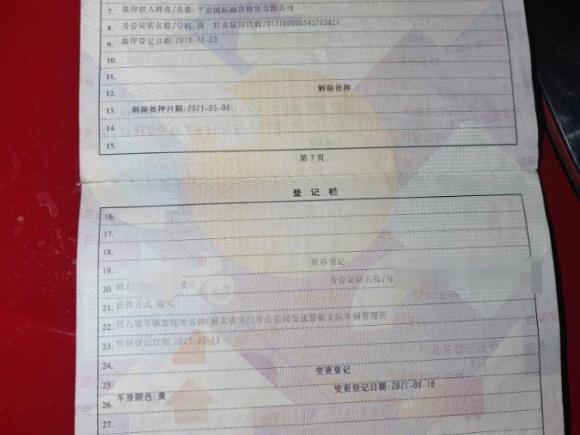 7. 抵押权人姓名/名称:平安国际融资租赁有限公司
8. 身份证明名称/号码:统一社会信用代码/
9. 抵押登记日期:2019-11-23
10.
11.
12. 解除抵押
13. 解除抵押日期:2021-05-08
14.
15.
第7页
登记栏
16.
17.
18.
19. 转移登记
20. 身份证明名称/号
21. 获得方式:购买
22. 转入地车辆管理所名称:湖北省天门市公安局交通警察支队车辆管理所
23. 转移登记日期:2021-05-13
24.
25. 变更登记
26. 车身颜色:黄 变更登记日期:2021-08-10
27.